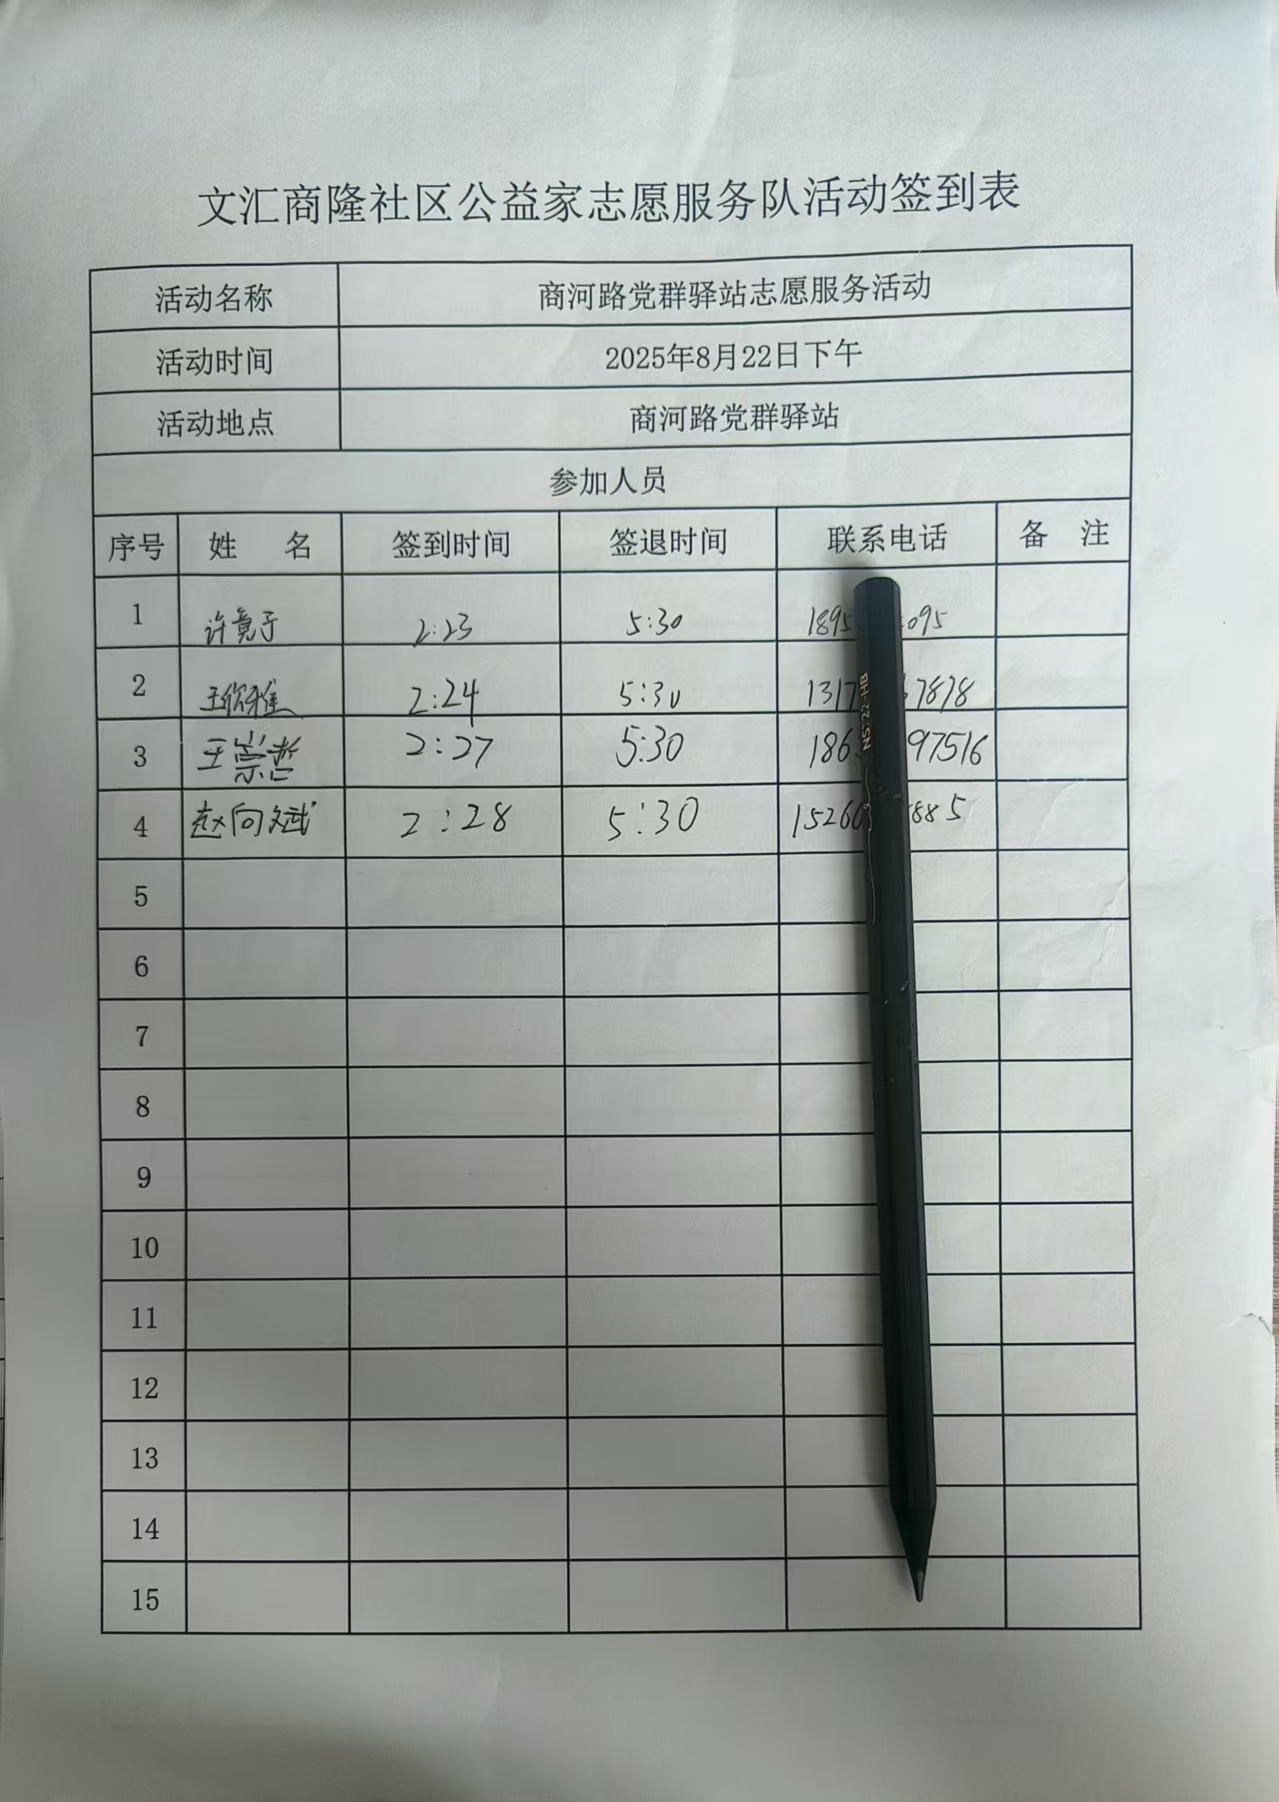 文汇商隆社区公益家志愿服务队活动签到表
活动名称 商河路党群驿站志愿服务活动
活动时间 2025年8月22日下午
活动地点 商河路党群驿站
参加人员
序号 姓 名 签到时间 签退时间 联系电话 备 注
1 许竟予 2:23 5:30 1895 095
2 2:24 5:30 1317 7878
3 王崇哲 2:27 5:30 186 97516
4 赵向斌 2:28 5:30 1526 885
5
6
7
8
9
10
11
12
13
14
15
NS722-HB